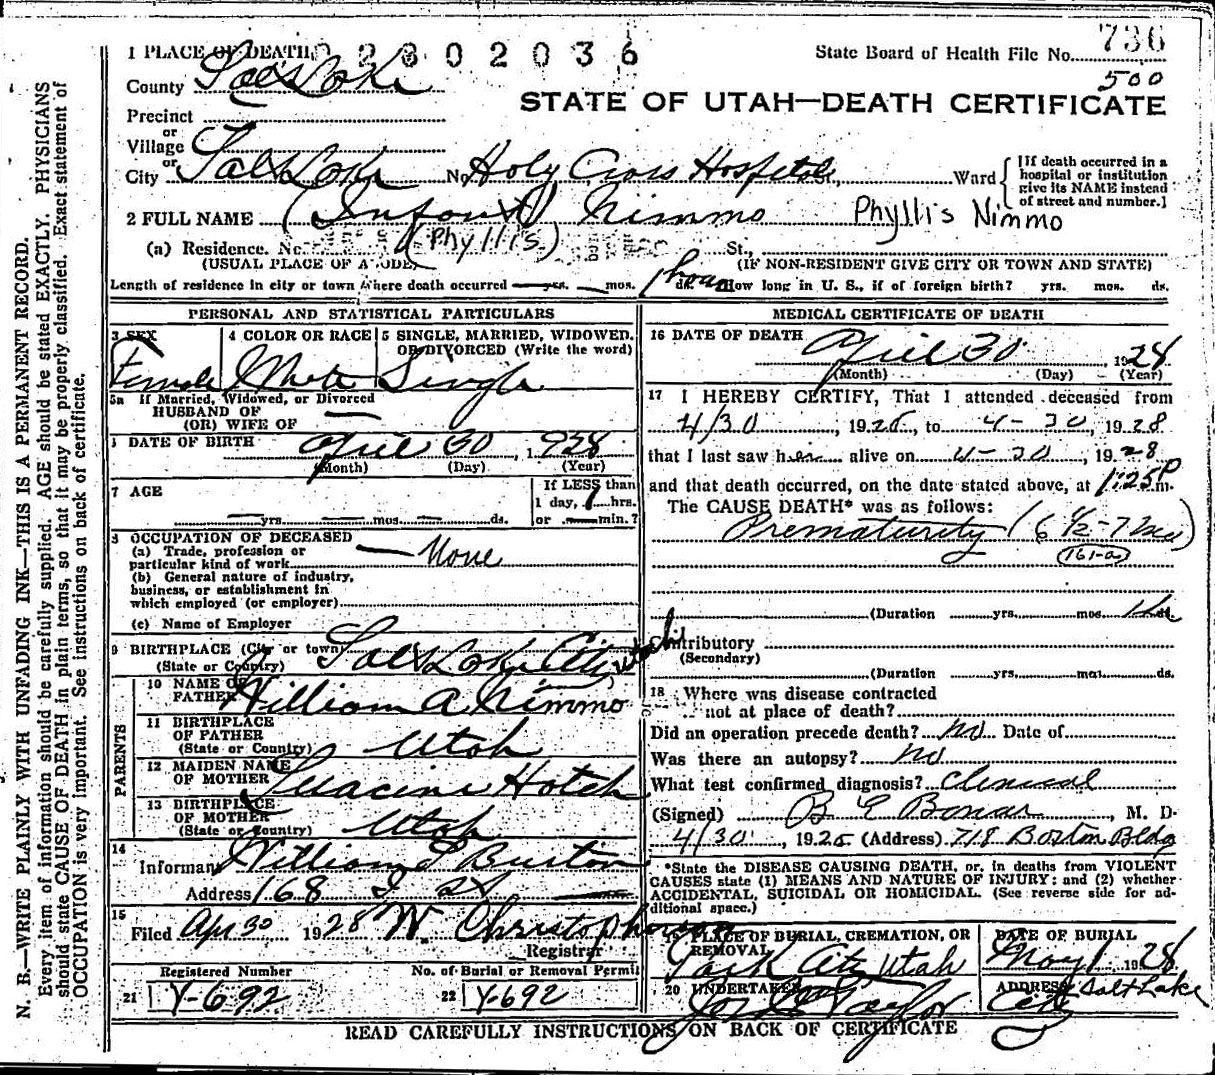 1 PLACE OF DEATH 2802036 State Board of Health File No. 736
500
County Salt Lake
STATE OF UTAH—DEATH CERTIFICATE
Precinct
or
Village
or
City Salt Lake No. Holy Cross Hospital St., Ward [If death occurred in a hospital or institution give its NAME instead of street and number.]
2 FULL NAME (Infant) Nimmo Phyllis Nimmo
(a) Residence. No. (Phyllis) St.,
(USUAL PLACE OF ABODE) (IF NON-RESIDENT GIVE CITY OR TOWN AND STATE)
Length of residence in city or town where death occurred — yrs. — mos. 1 hour ds. How long in U. S., if of foreign birth? yrs. mos. ds.
PERSONAL AND STATISTICAL PARTICULARS
3 SEX 4 COLOR OR RACE 5 SINGLE, MARRIED, WIDOWED, OR DIVORCED (Write the word)
Female White Single
5a If Married, Widowed, or Divorced
HUSBAND OF
(OR) WIFE OF —
DATE OF BIRTH April 30, 1928
(Month) (Day) (Year)
7 AGE — yrs. — mos. — ds. If LESS than 1 day, 1 hrs. or — min.?
8 OCCUPATION OF DECEASED
(a) Trade, profession or particular kind of work — None
(b) General nature of industry, business, or establishment in which employed (or employer)
(c) Name of Employer
9 BIRTHPLACE (City or town) Salt Lake City Utah
(State or Country)
PARENTS
10 NAME OF FATHER William A Nimmo
11 BIRTHPLACE OF FATHER (State or Country) Utah
12 MAIDEN NAME OF MOTHER Hatch
13 BIRTHPLACE OF MOTHER (State or Country) Utah
14 Informant William S Burton
Address 168 I St
15 Filed Apr 30 1928 W. Christopherson
Registrar
Registered Number No. of Burial or Removal Permit
21 Y-692 22 Y-692
MEDICAL CERTIFICATE OF DEATH
16 DATE OF DEATH April 30, 1928
(Month) (Day) (Year)
17 I HEREBY CERTIFY, That I attended deceased from
4/30, 1928, to 4-30, 1928
that I last saw her alive on 4-30, 1928
and that death occurred, on the date stated above, at 1:25 P m.
The CAUSE DEATH* was as follows:
Prematurity (6 1/2-7 mo)
(161-a)
(Duration yrs. mos. ds.
Contributory
(Secondary)
(Duration yrs. mos. ds.
18 Where was disease contracted
not at place of death?
Did an operation precede death? no Date of
Was there an autopsy? no
What test confirmed diagnosis? Clinical
(Signed) B E Bonar, M. D.
4/30, 1928 (Address) 718 Boston Bldg
*State the DISEASE CAUSING DEATH, or, in deaths from VIOLENT
CAUSES state (1) MEANS AND NATURE OF INJURY: and (2) whether
ACCIDENTAL, SUICIDAL OR HOMICIDAL. (See reverse side for additional space.)
19 PLACE OF BURIAL, CREMATION, OR REMOVAL DATE OF BURIAL
Park City Utah May 1 1928
20 UNDERTAKER Taylor ADDRESS Salt Lake City
READ CAREFULLY INSTRUCTIONS ON BACK OF CERTIFICATE
N. B.—WRITE PLAINLY WITH UNFADING INK—THIS IS A PERMANENT RECORD.
Every item of information should be carefully supplied. AGE should be stated EXACTLY. PHYSICIANS
should state CAUSE OF DEATH in plain terms, so that it may be properly classified. Exact statement of
OCCUPATION is very important. See instructions on back of certificate.